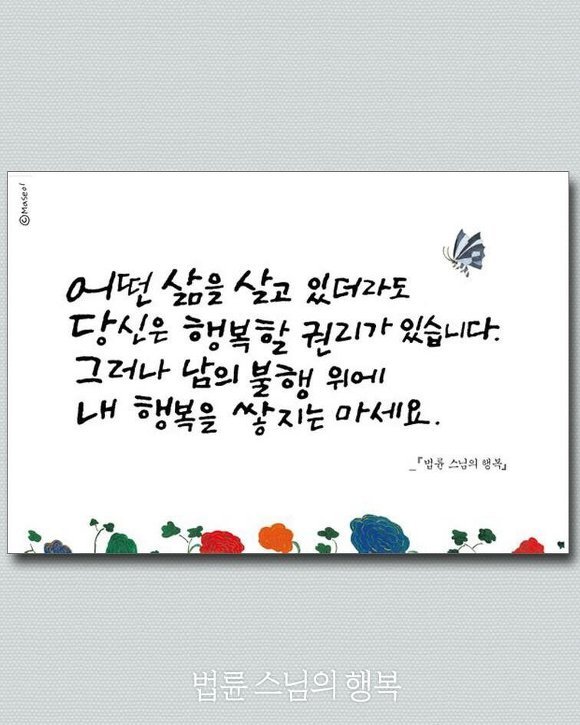 ©Maseol
어떤 삶을 살고 있더라도
당신은 행복할 권리가 있습니다.
그러나 남의 불행 위에
내 행복을 쌓지는 마세요.
_『법륜 스님의 행복』
법륜 스님의 행복